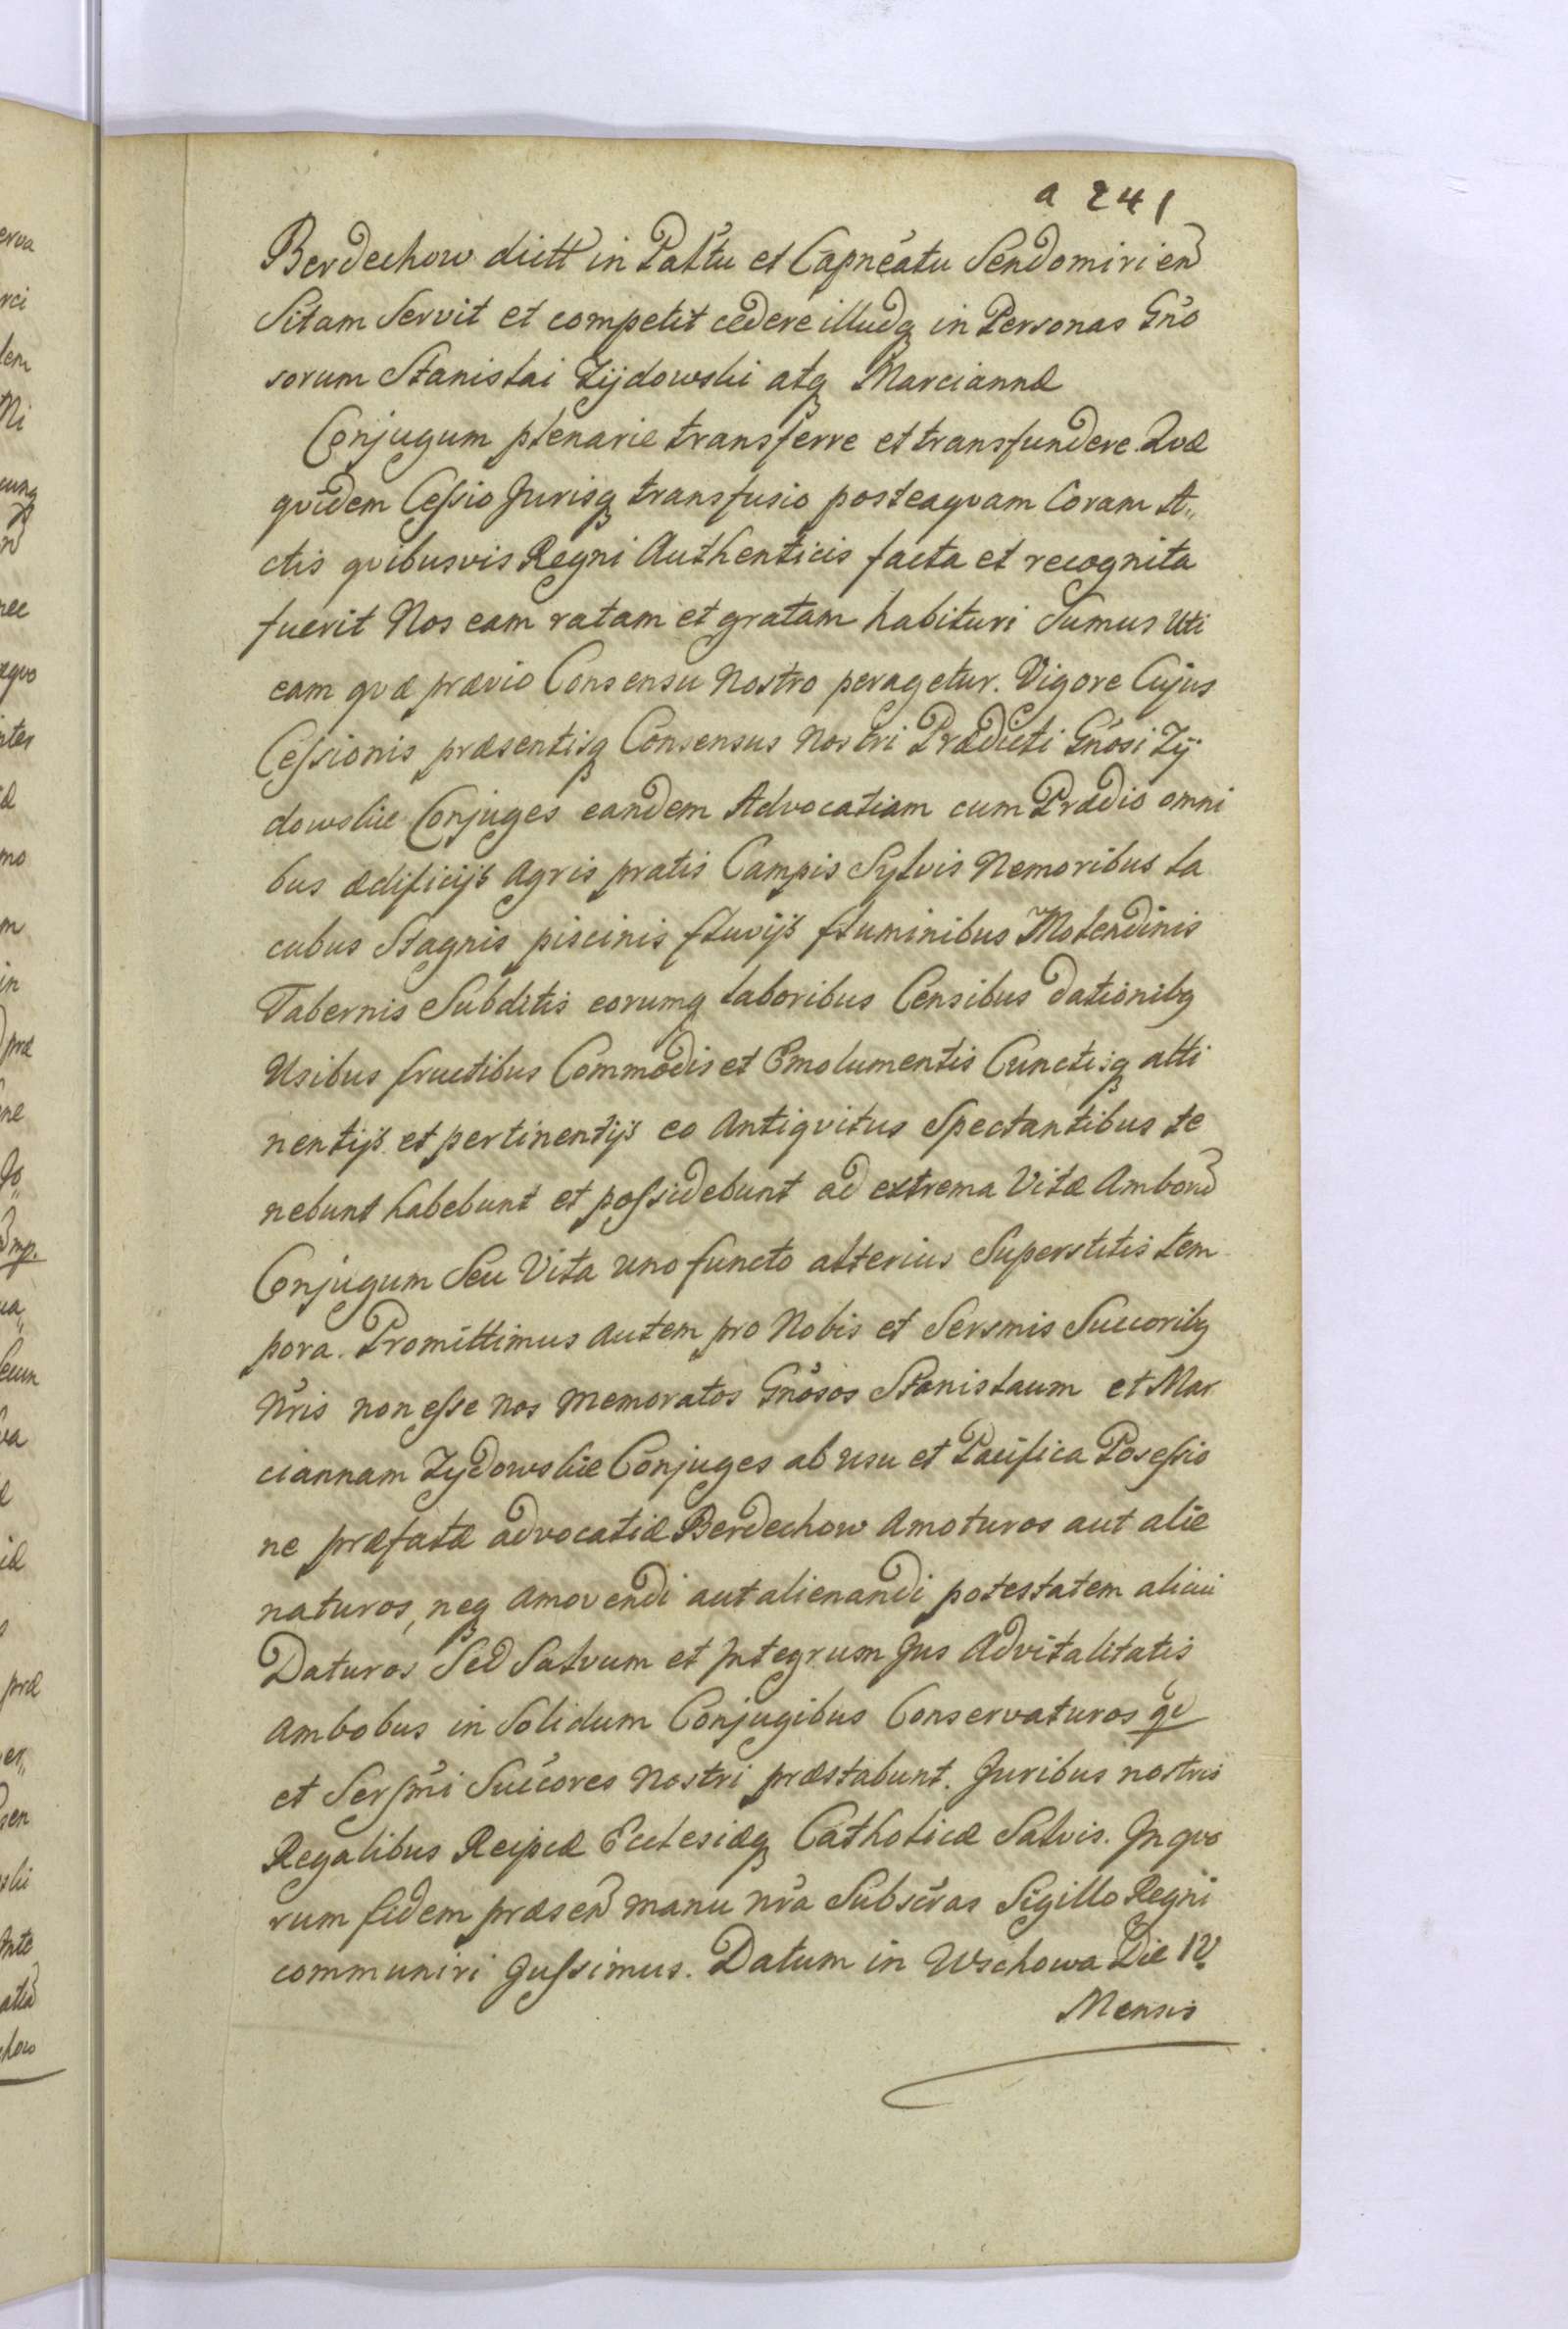 a 241
Berdechow dictt in Pałtu et Capneatu Sendomirien
Sitam Servit et competit cedere illudq in Personas Gno
sorum Stanislai Zijdowski atq Marciannæ
Conjugum plenarie transferre et transfundere. Qvæ
qvidem Cessio Jurisq transfusio posteaqvam Coram A„
ctis qvibusvis Regni Authenticis facta et recognita
fuerit Nos eam ratam et gratam habituri Sumus Uti
eam qvæ prævio Consensu Nostro peragetur. Vigore Cujus
Cessionis præsentisq Consensus Nostri Prædicti Gnosi Zy
dowskie Conjuges eandem Advocatiam cum Prædio omni
bus ædificijs Agris pratis Campis Sylvis Nemoribus La
cubus Stagnis piscinis fluvijs fluminibus Molendinis
Tabernis Subditis eorumq laboribus Censibus dationibq
Usibus fructibus Commodis et Emolumentis Cunctisq atti
nentijs et pertinentijs eo Antiqvitus Spectantibus te
nebunt habebunt et possidebunt ad extrema Vitæ Ambord
Conjugum Seu Vita uno functo alterius Superstitis tem
pora. Promittimus Autem pro Nobis et Sersmis Succoribq
Nris non esse Nos Memoratos Gnosos Stanislaum et Mar
ciannam Zydowskie Conjuges ab usu et Pacifica Posessio
ne præfatæ advocatiæ Berdechow Amoturos aut alie
naturos, neq Amovendi aut alienandi potestatem alicui
Daturos Sed Salvum et Integrum Jus Advitalitatis
Ambobus in Solidum Conjugibus Conservaturos qd
et Sersmi Succores Nostri præstabunt. Juribus nostris
Regalibus Reipcæ Ecclesiæq Catholicæ Salvis. In qvo
rum fidem præsen manu nra Subscras Sigillo Regni
communiri Jussimus. Datum in Wschowa Die IV
Mensis